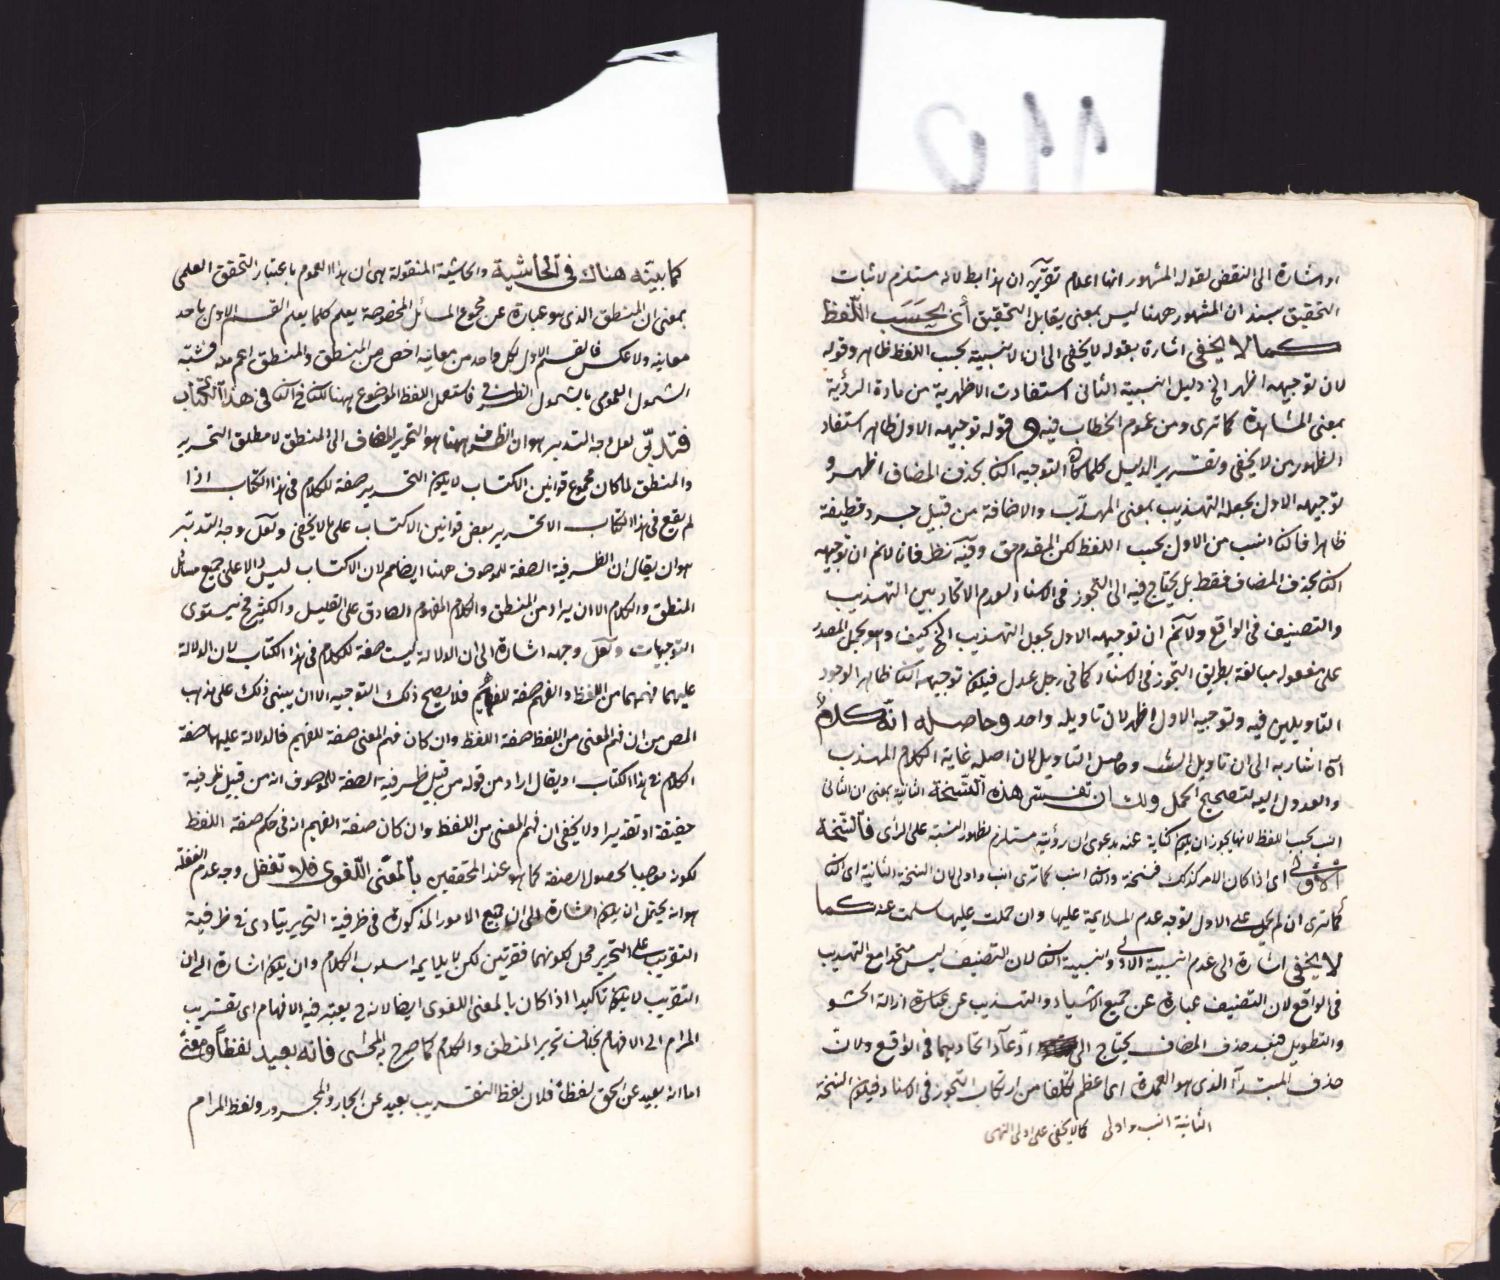 او اشارة الى النقض لقوله المشهور انها اعلام تقريره ان هذا بط لانه مستلزم لاثبات
التحقيق بسند ان المشهور ههنا ليس بمعنى يقابل التحقيق أي بحسب اللفظ
كما لا يخفى اشارة بقوله لا يخفى الى ان الانسبية بحسب اللفظ ظاهر وقوله
لان توجيهه اظهر الخ دليل انسبية الثانى استفادت الاظهرية من مادة الرؤية
بمعنى المشاهدة كما ترى ومن عموم الخطاب فيه وقوله توجيهه الاول ظاهر استفاد
الظهور من لا يخفى وتقرير الدليل كلما كان التوجيه الثا بحذف المضاف اظهر و
توجيهه الاول بجعل التهذيب بمعنى المهذب والاضافة من قبيل جرد قطيفة
ظاهرا فالثا انسب من الاول بحسب اللفظ لكن المقدم حق وفيه نظر فانا لا نم ان توجيهه
الثا بحذف المضاف فقط بل يحتاج فيه الى التجوز فى الاسناد لعدم الاتحاد بين التهذيب
والتصنيف فى الواقع ولا نم ان توجيهه الاول بجعل التهذيب الخ كيف وهو يحمل المصدر
على مفعوله مبالغة بطريق التجوز فى الاسناد كما فى رجل عدل فيكون توجيهه الثا ظاهر الوجود
التاويلين فيه وتوجيه الاول اظهر لان تاويله واحد وحاصله انه كلام
اه اشار به الى ان تاويل الثا وحاصل التاويل لان اصله غاية الكلام المهذب
والعدول اليه لتصحيح الحمل ولك ان تفسر هذه النسخة الثانية بمعنى ان الثانى
انسب بحسب اللفظ لانها يجوز ان يكون كناية عنه بدعوى ان رؤيته مستلزم لظهور النسبة على الرأى فالنسخة
الاولى اى اذا كان الامر كذلك فنسخة والثا انسب كما ترى انسب واولى لان النسخة الثانية اى الثا
كما ترى ان لم يحمل على الاول توجه عدم الملايمة عليها وان حملت عليها سلمت عنه كما
لا يخفى اشارة الى عدم انسبية الاولى وانسبية الثا لان التصنيف ليس متحدا مع التهذيب
فى الواقع لان التصنيف عبارة عن جميع الاشياء والتهذيب عن عبارة ازالة الحشو
والتطويل فبعد حذف المضاف يحتاج الى ادعاء اتحاديهما فى الواقع ولان
حذف المبتدأ الذى هو العمدة اى اعظم تكلفا من ارتكاب التجوز فى الاسناد فيكون النسخة
الثانية انسب واولى كما لا يخفى على اولى النهى
كما بينه هناك فى الحاشية والحاشية المنقولة هى ان هذا العموم باعتبار التحقق العلمى
بمعنى ان المنطق الذى هو عبارة عن مجموع المسائل المخصوصة يعلم كلما يعلم القسم الاول باحد
معانيه ولا عكس فالقسم الاول لكل واحد من معانيه اخص من المنطق والمنطق اعم منه فشبه
الشمول العمومى بالشمول الظرفى فاستعمل اللفظ الموضوع فى هذا الكتاب
فتدبر لعل وجه التدبر هو ان الظرف ههنا هو التحرير المضاف الى المنطق لا مطلق التحرير
والمنطق لما كان مجموع قوانين الاكتساب لا يكون التحرير صفة للكلام فى هذا الكتاب اذا
لم يقع فى هذا الكتاب الا تحرير بعض قوانين الاكتساب على ما لا يخفى ولعل وجه التدبر
هو ان يقال ان الظرفية الصفة للموصوف ههنا ايضا لم لان الاكتساب ليس الا على جميع مسائل
المنطق والكلام الا ان يراد من المنطق والكلام المفهوم الصادق على القليل والكثير فح يستوى
التوجيهات ولعل وجهه اشارة الى ان الدلالة ليست صفة للكلام فى هذا الكتاب لان الدلالة
عليهما فهمهما من اللفظ والفهم صفة للفهيم فلا يصح ذلك التوجيه الا ان يبنى ذلك على مذهب
المص من ان فهم المعنى من اللفظ صفة اللفظ وان كان فهم المعنى صفة للفهيم فالدلالة عليهما صفة
الكلام فى هذا الكتاب او يقال اراد من قوله من قبيل ظرفية الصفة للموصوف انه من قبيل ظرفية
حقيقة او تقديرا ولا يخفى ان فهم المعنى من اللفظ وان كان صفة الفهيم انه فى حكم صفة اللفظ
لكونه موجبا لحصول الصفة كما هو عند المحققين بالمعنى اللغوى فلا تغفل وجه عدم الغفلة
هو انه يحتمل ان يكون اشارة الى ان جميع الامور المذكورة فى ظرفية التحرير يتادى فى ظرفية
التقريب على التحرير محل لكونهما فقرتين لكن لا يلايمه اسلوب الكلام وان يكون اشارة الى ان
التقريب لا يكون تأكيدا اذا كان بالمعنى اللغوى ايضا لانه ح يعتبر فيه الافهام اى تقريب
المرام الى الافهام بخلاف تحرير المنطق والكلام كما صرح به المحشى فانه بعيد لفظا ومعنى
اما انه بعيد عن الحق لفظا فلان لفظ التقريب بعيد عن الجار والمجرور ولفظ المرام